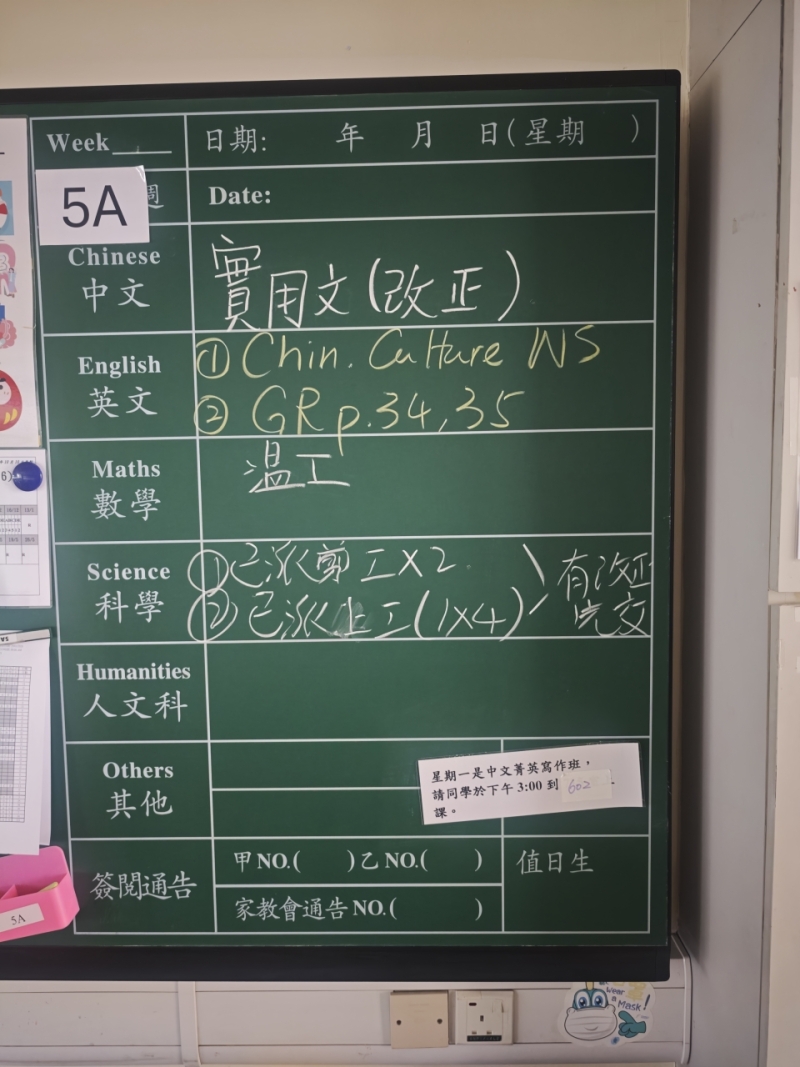 Week
日期: 年 月 日(星期 )
5A
週
Date:
Chinese
中文
實用文(改正)
English
英文
① Chin. Culture WS
② GR p.34, 35
Maths
數學
溫工
Science
科學
①已派 工X2
②已派 工(1X4)
有改正
先交
Humanities
人文科
Others
其他
星期一是中文菁英寫作班，
請同學於下午 3:00 到 602
課。
簽閱通告
甲 NO.( )乙 NO.( )
值日生
家教會通告 NO.( )
5A
Wear
a
Mask!